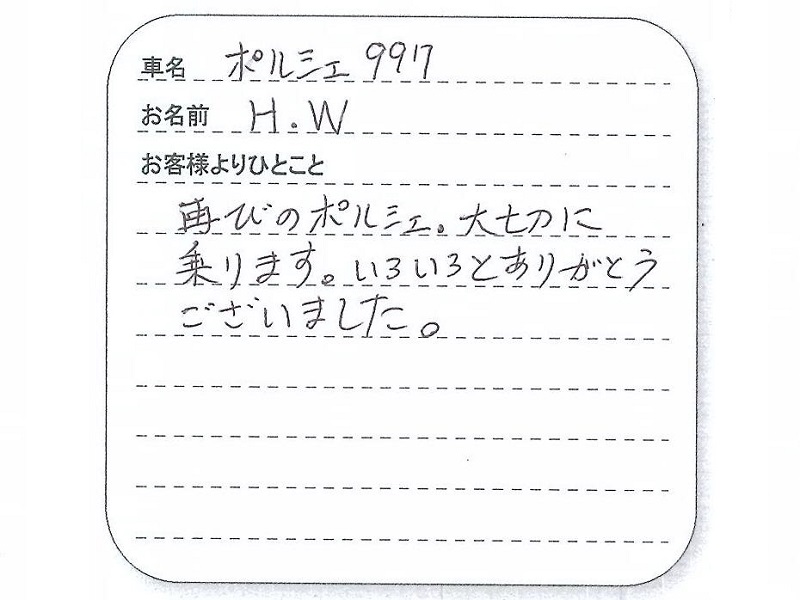 車名 ポルシェ 997
お名前 H.W
お客様よりひとこと
再びのポルシェ。大切に
乗ります。いろいろとありがとう
ございました。